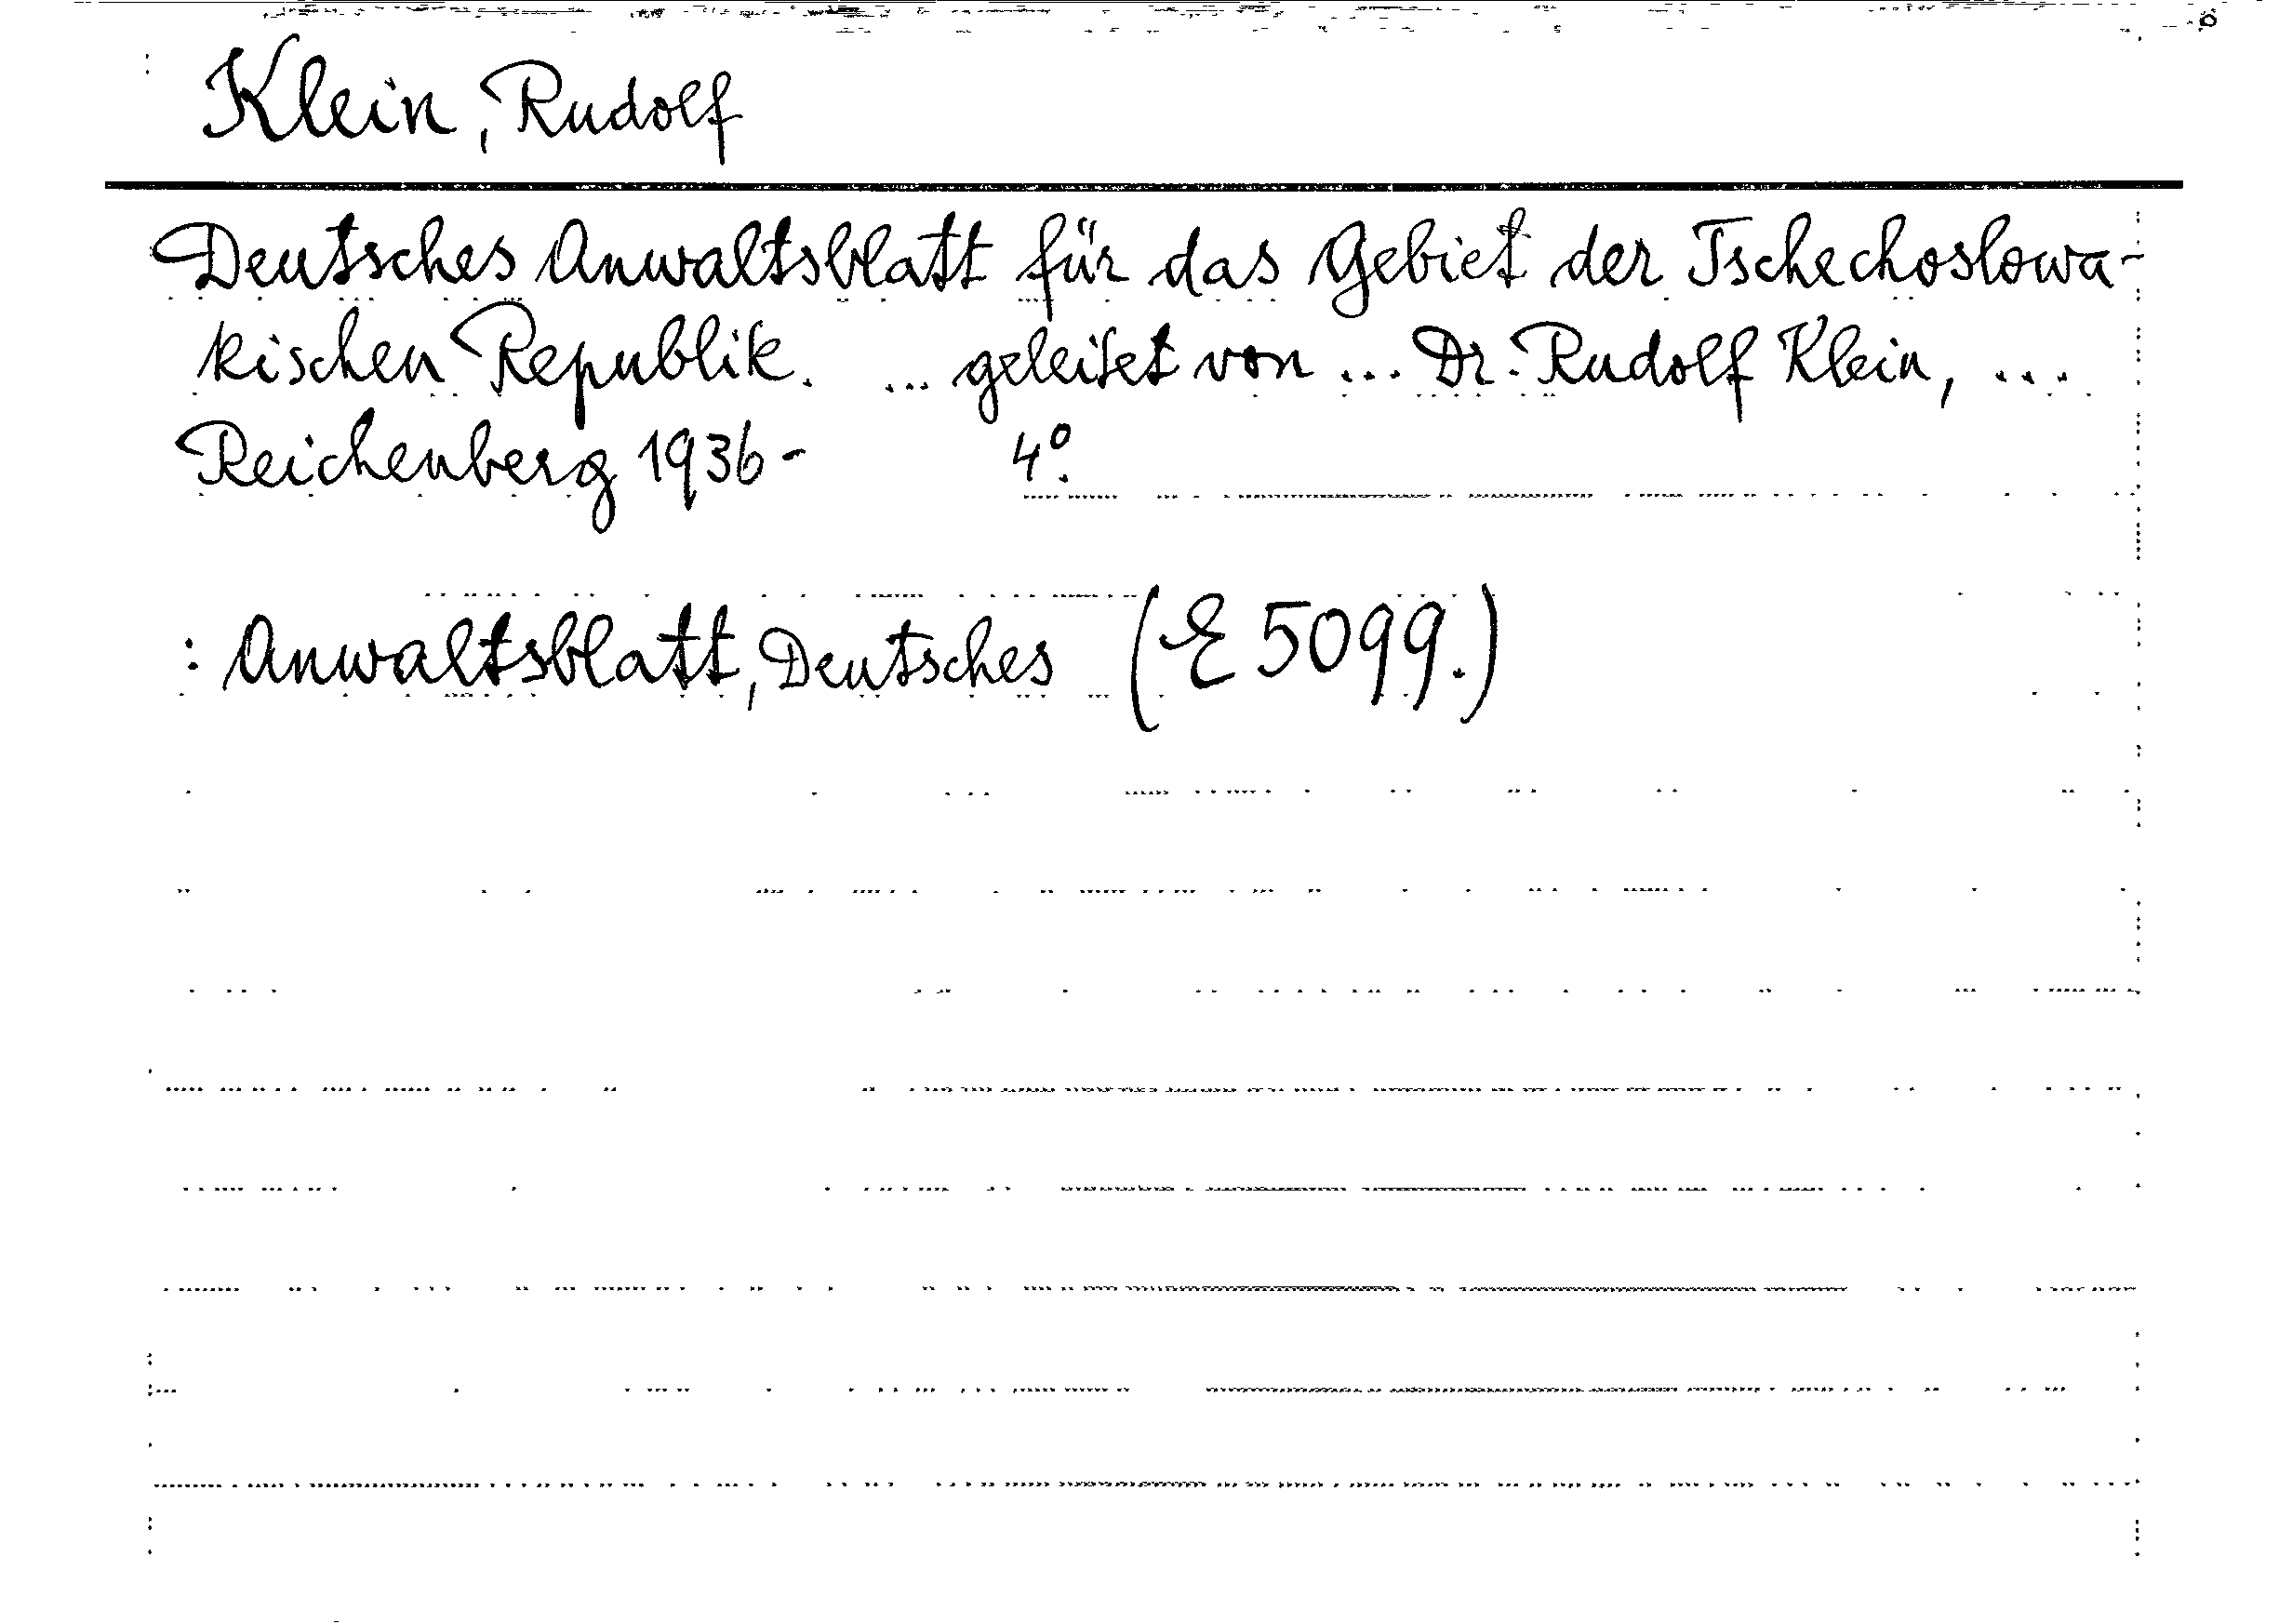 Klein, Rudolf
Deutsches Anwaltsblatt für das Gebiet der Tschechoslowa-
kischen Republik. ... geleitet von ... Dr. Rudolf Klein, ...
Reichenberg 1936- 4º.
: Anwaltsblatt, Deutsches (E 5099.)